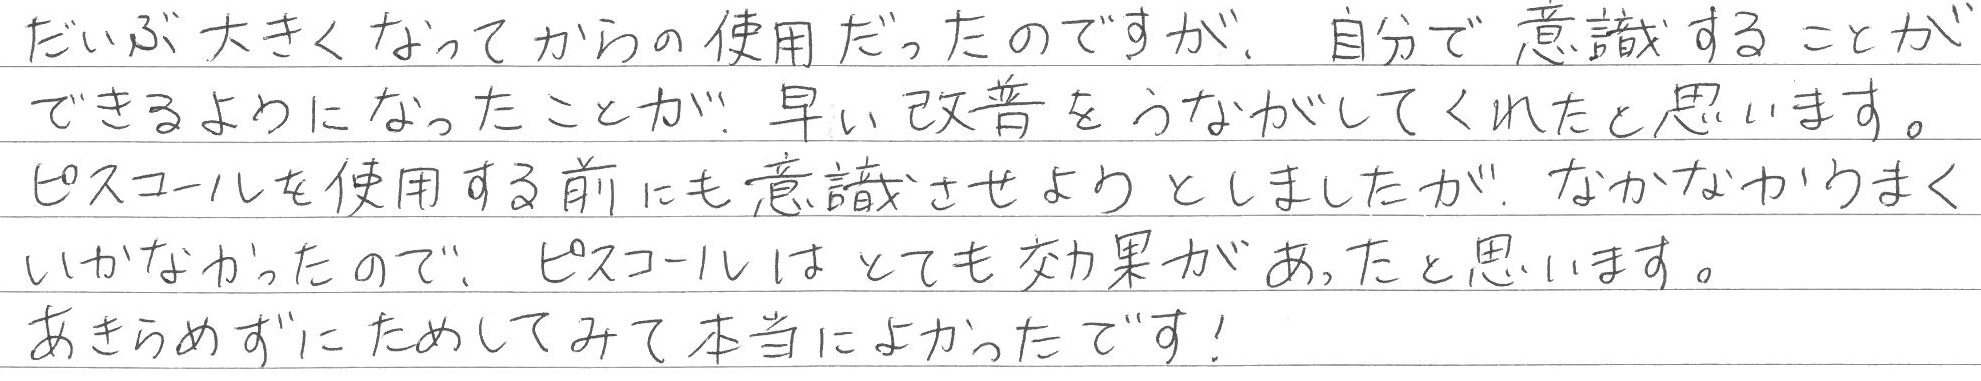 だいぶ大きくなってからの使用だったのですが、自分で意識することが
できるようになったことが、早い改善をうながしてくれたと思います。
ピスコールを使用する前にも意識させようとしましたが、なかなかうまく
いかなかったので、ピスコールはとても効果があったと思います。
あきらめずにためしてみて本当によかったです！